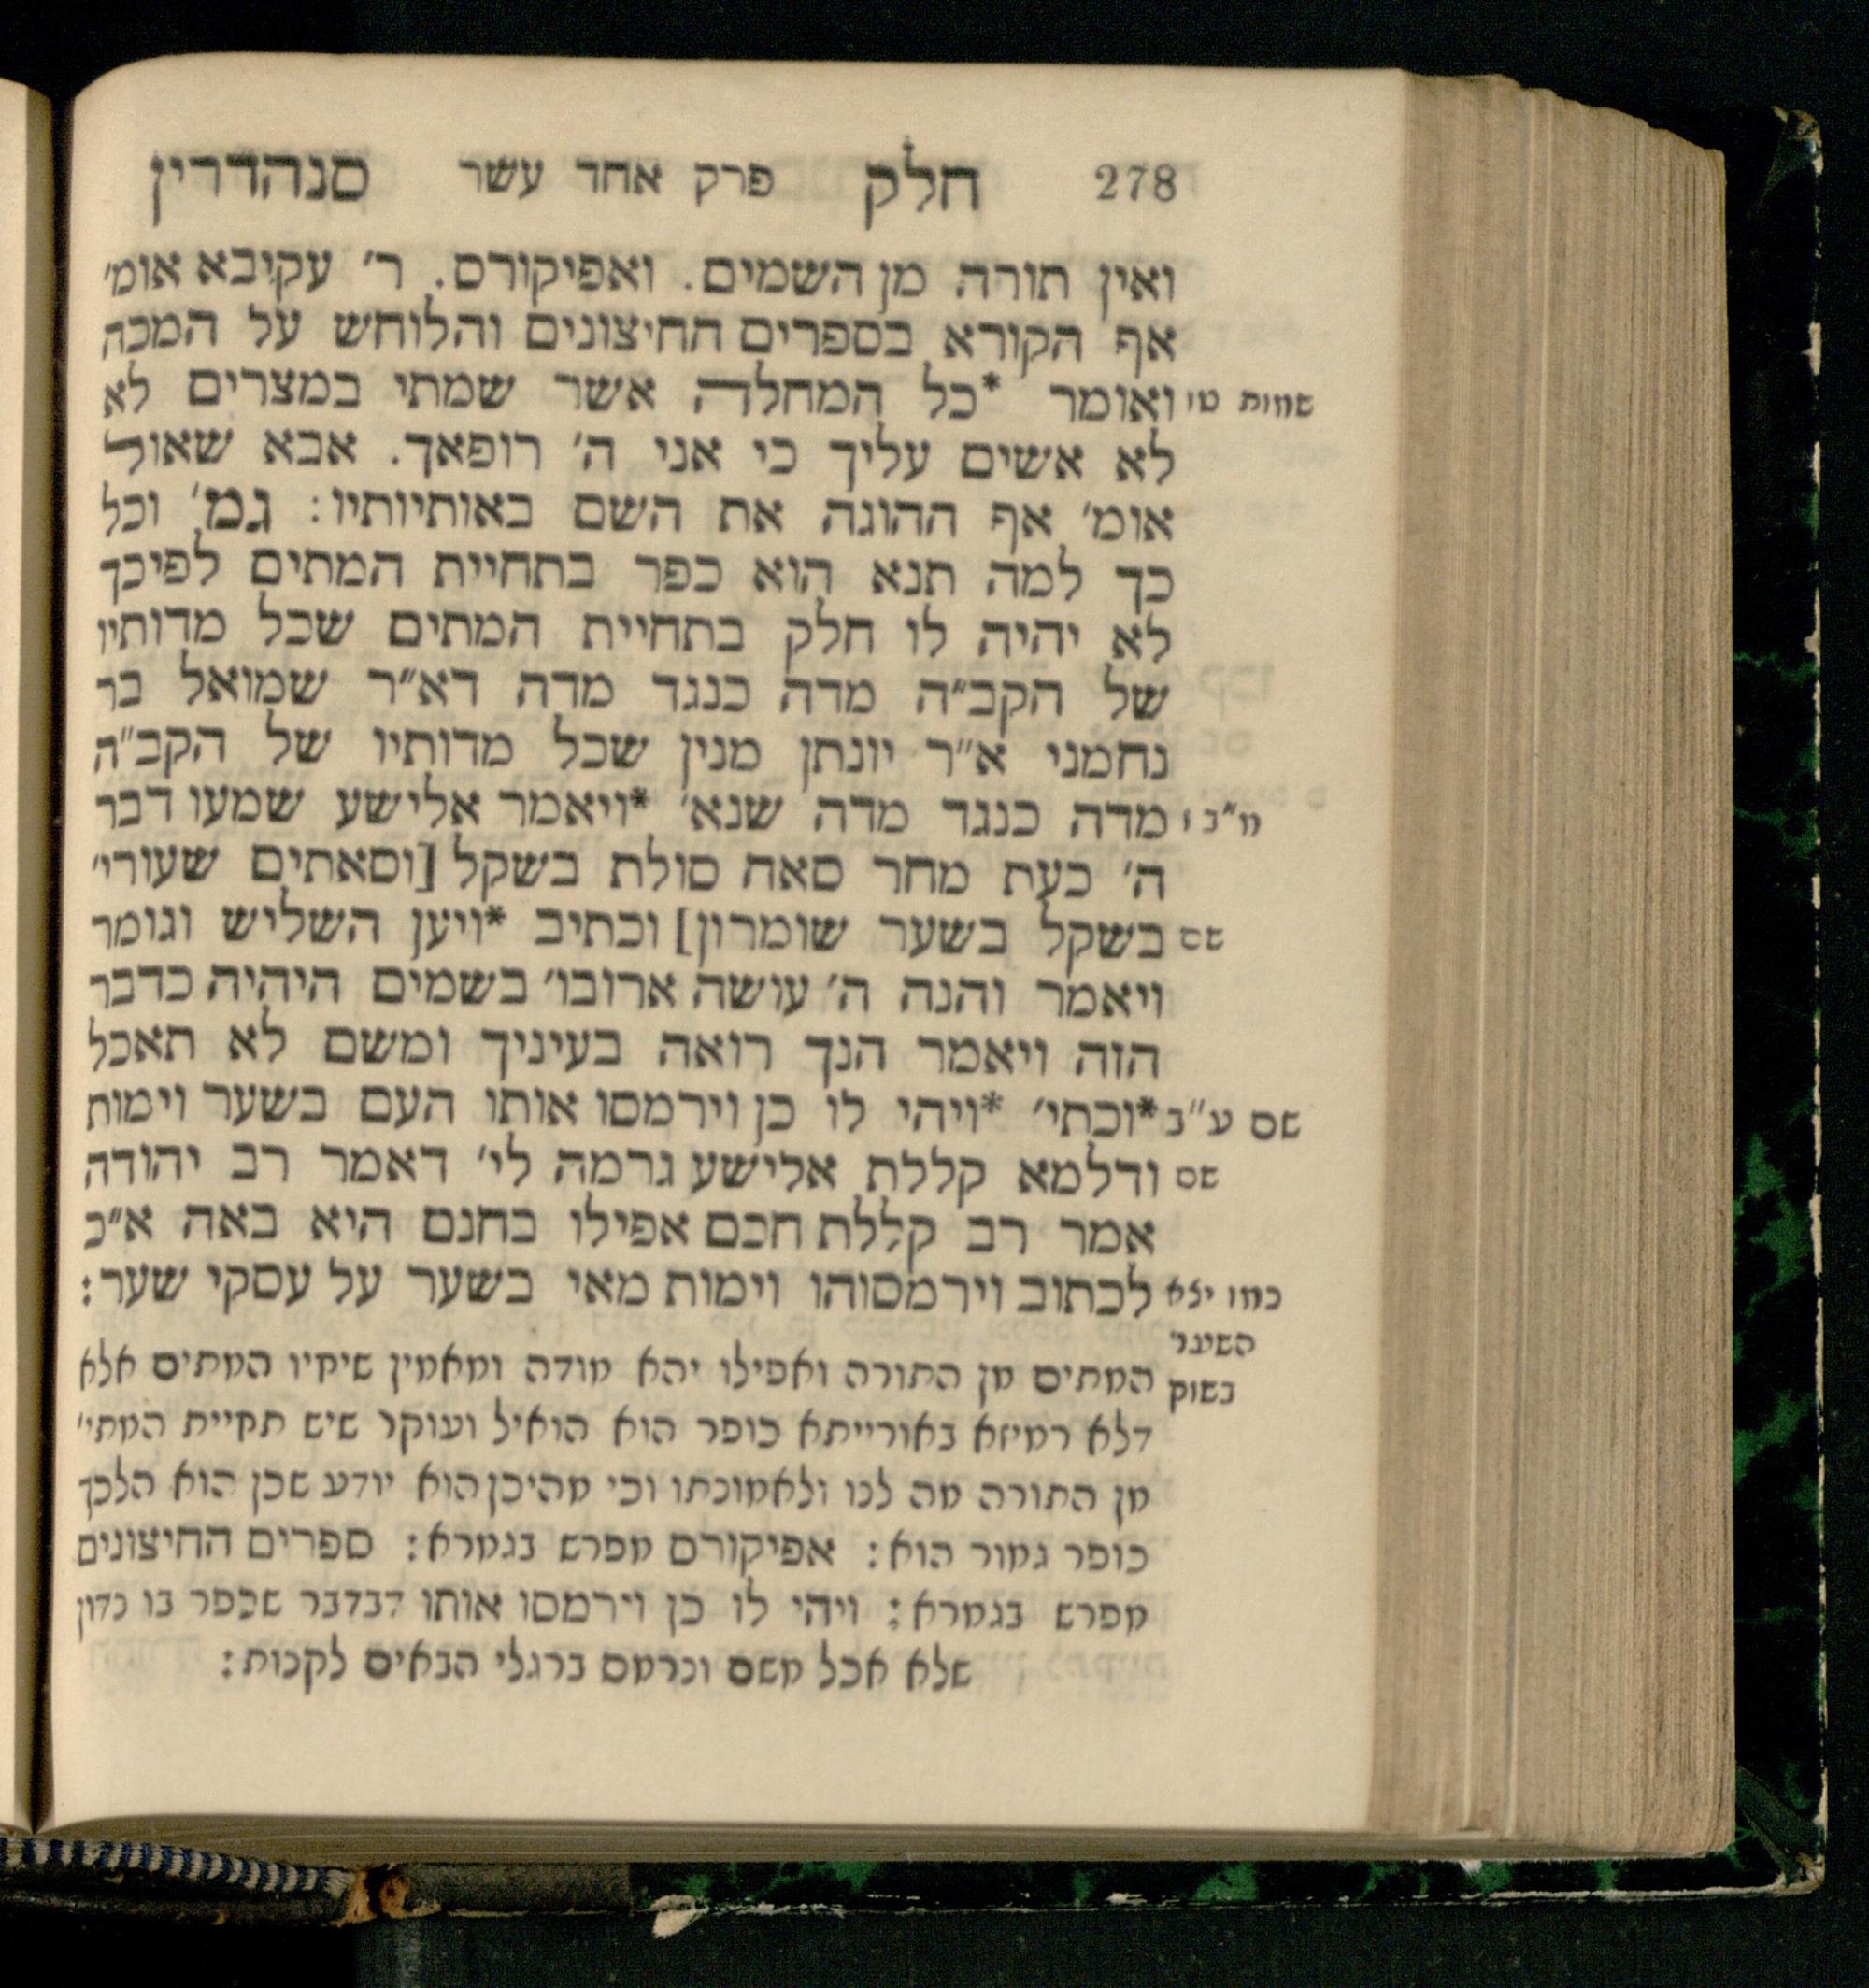 278 חלק פרק אחד עשר סנהדרין
ואין תורה מן השמים. ואפיקורם. ר׳ עקיבא אומ׳
אף הקורא בספרים החיצונים והלוחש על המכה
שמות טו ואומר *כל המחלה אשר שמתי במצרים לא
לא אשים עליך כי אני ה׳ רופאך. אבא שאול
אומ׳ אף ההוגה את השם באותיותיו: גמ׳ וכל
כך למה תנא הוא כפר בתחיית המתים לפיכך
לא יהיה לו חלק בתחיית המתים שכל מדותיו
של הקב״ה מדה כנגד מדה דא״ר שמואל בר
נחמני א״ר יונתן מנין שכל מדותיו של הקב״ה
מ״ב ז מדה כנגד מדה שנא׳ *ויאמר אלישע שמעו דבר
ה׳ כעת מחר סאה סולת בשקל [וסאתים שעורי׳
שם בשקל בשער שומרון] וכתיב *ויען השליש וגומר
ויאמר והנה ה׳ עושה ארובו׳ בשמים היהיה כדבר
הזה ויאמר הנך רואה בעיניך ומשם לא תאכל
שם ע״ב *וכתי׳ *ויהי לו כן וירמסו אותו העם בשער וימות
שם ודלמא קללת אלישע גרמה לי׳ דאמר רב יהודה
אמר רב קללת חכם אפילו בחנם היא באה א״כ
כמו יצא לכתוב וירמסוהו וימות מאי בשער על עסקי שער:
השיגר
בשוק המתים מן התורה ואפילו יהא מודה ומאמין שיחיו המתים אלא
דלא רמיזא באורייתא כופר הוא הואיל ועוקר שיש תחיית המתי׳
מן התורה מה לנו ולאמונתו וכי מהיכן הוא יודע שכן הוא הלכך
כופר גמור הוא: אפיקורם מפרש בגמרא: ספרים החיצונים
מפרש בגמרא: ויהי לו כן וירמסו אותו דבדבר שכפר בו נדון
שלא אכל משם ונרמס ברגלי הבאים לקנות: